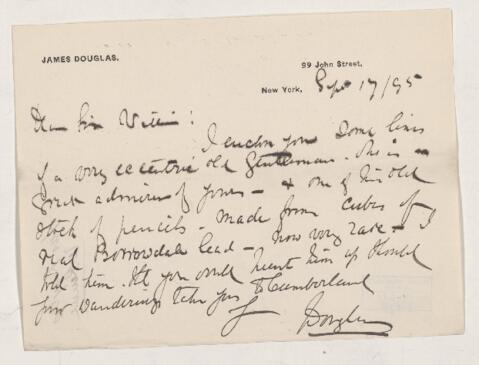 JAMES DOUGLAS.
99 John Street,
New York, Sept 17/95
Dear Sir William:
I enclose you some lines
of a very eccentric old Gentleman. who is a
great admirer of yours - & one of his old
stock of pencils - made from cubes of
real Borrowdale lead - now very rare - I
told him. that you would hunt him up should
your wanderings take you to Cumberland
Douglas